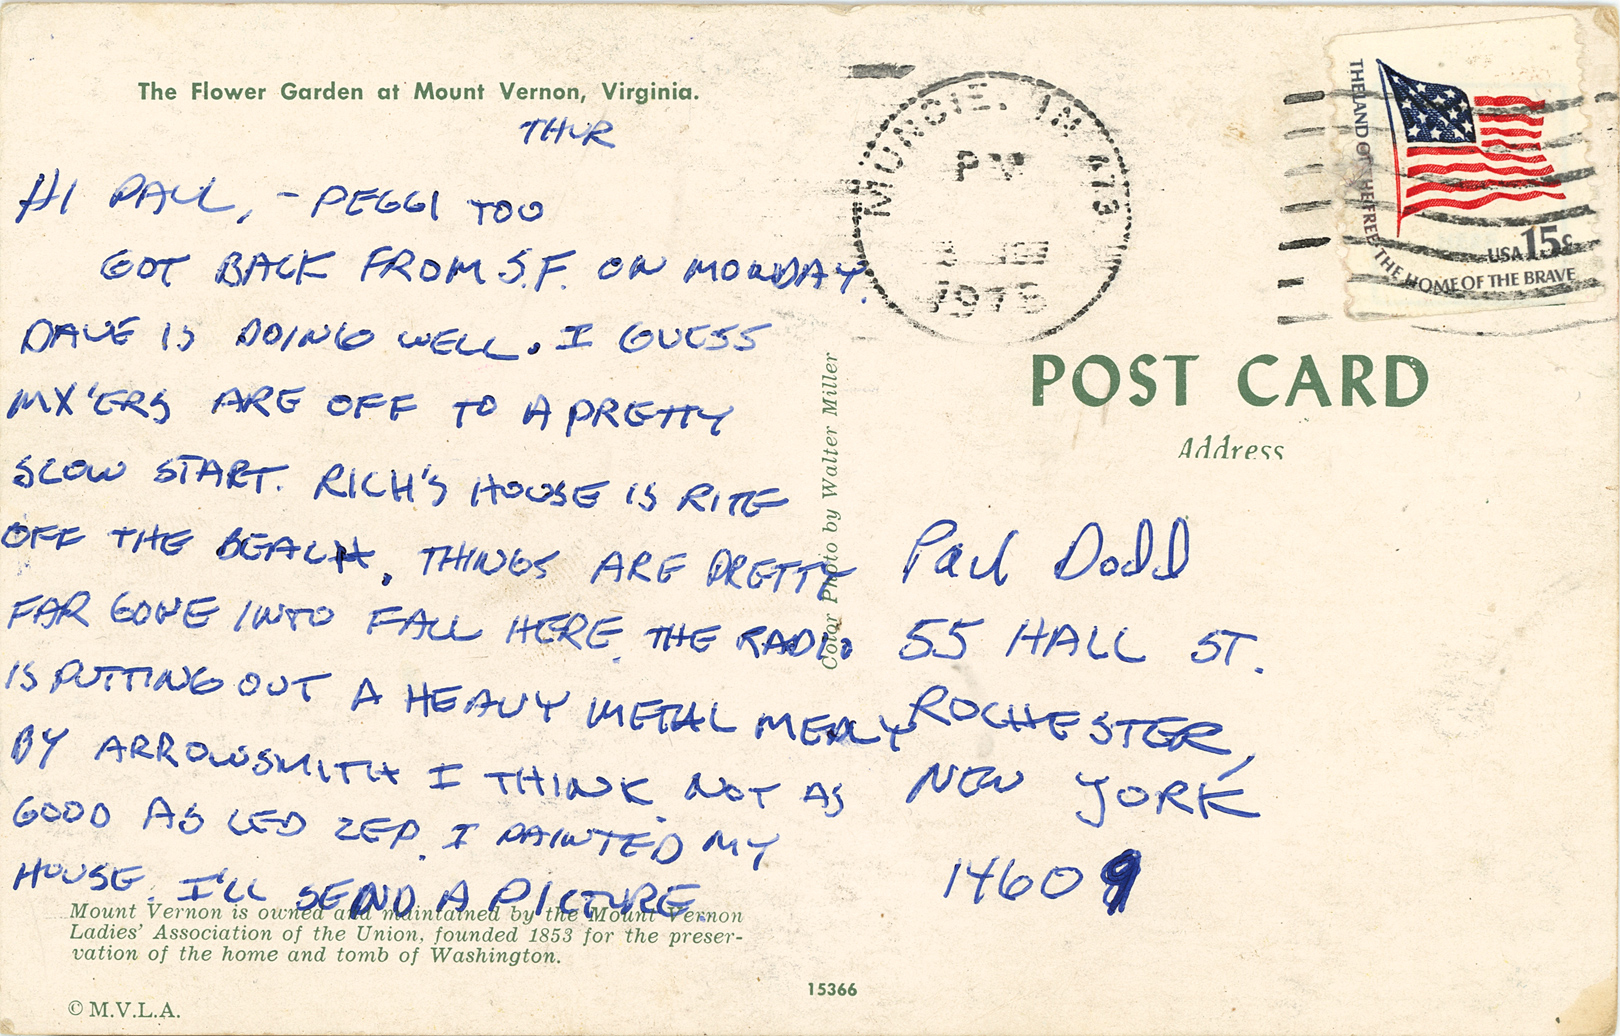 The Flower Garden at Mount Vernon, Virginia.
THUR
HI PAUL, - PEGGI TOO
GOT BACK FROM S.F. ON MONDAY.
DAVE IS DOING WELL. I GUESS
MX'ERS ARE OFF TO A PRETTY
SLOW START. RICH'S HOUSE IS RITE
OFF THE BEACH. THINGS ARE PRETTY
FAR GONE INTO FALL HERE. THE RADIO
IS PUTTING OUT A HEAVY METAL MEDLY
BY ARROWSMITH I THINK. NOT AS
GOOD AS LED ZEP. I PAINTED MY
HOUSE. I'LL SEND A PICTURE.
Mount Vernon is owned and maintained by the Mount Vernon
Ladies' Association of the Union, founded 1853 for the preser-
vation of the home and tomb of Washington.
© M.V.L.A.
15366
Color Photo by Walter Miller
MUNCIE, IN 473
PM
1978
THE LAND OF THE FREE THE HOME OF THE BRAVE
USA 15c
POST CARD
Address
Paul Dodd
55 HALL ST.
ROCHESTER,
NEW YORK
14609